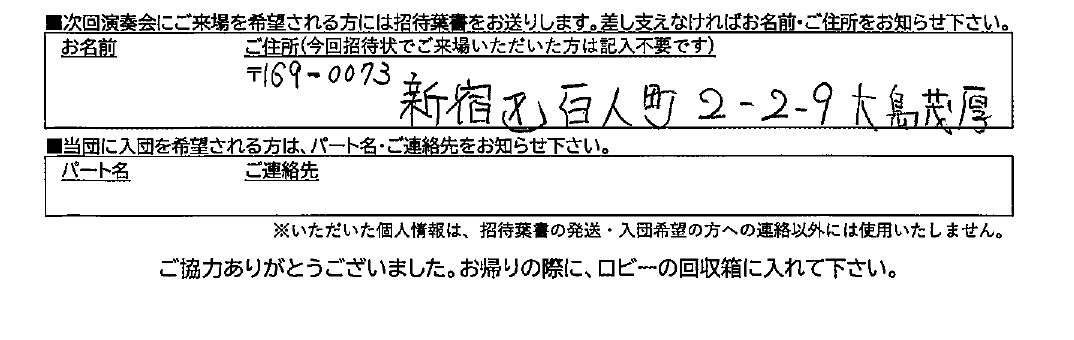 ■次回演奏会にご来場を希望される方には招待葉書をお送りします。差し支えなければお名前・ご住所をお知らせ下さい。
お名前 ご住所(今回招待状でご来場いただいた方は記入不要です)
〒169-0073
新宿区百人町2-2-9 大島茂厚
■当団に入団を希望される方は、パート名・ご連絡先をお知らせ下さい。
パート名 ご連絡先
※いただいた個人情報は、招待葉書の発送・入団希望の方への連絡以外には使用いたしません。
ご協力ありがとうございました。お帰りの際に、ロビーの回収箱に入れて下さい。